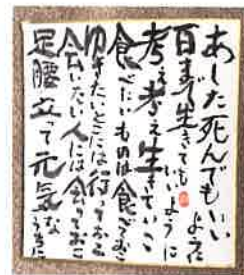 あした死んでもいいように
百まで生きてもいいように
考え考え生きていこ
食べたいものは食べておこ
ゆきたいとこには行っておこ
会いたい人には会っておこ
足腰立って元気なうちに